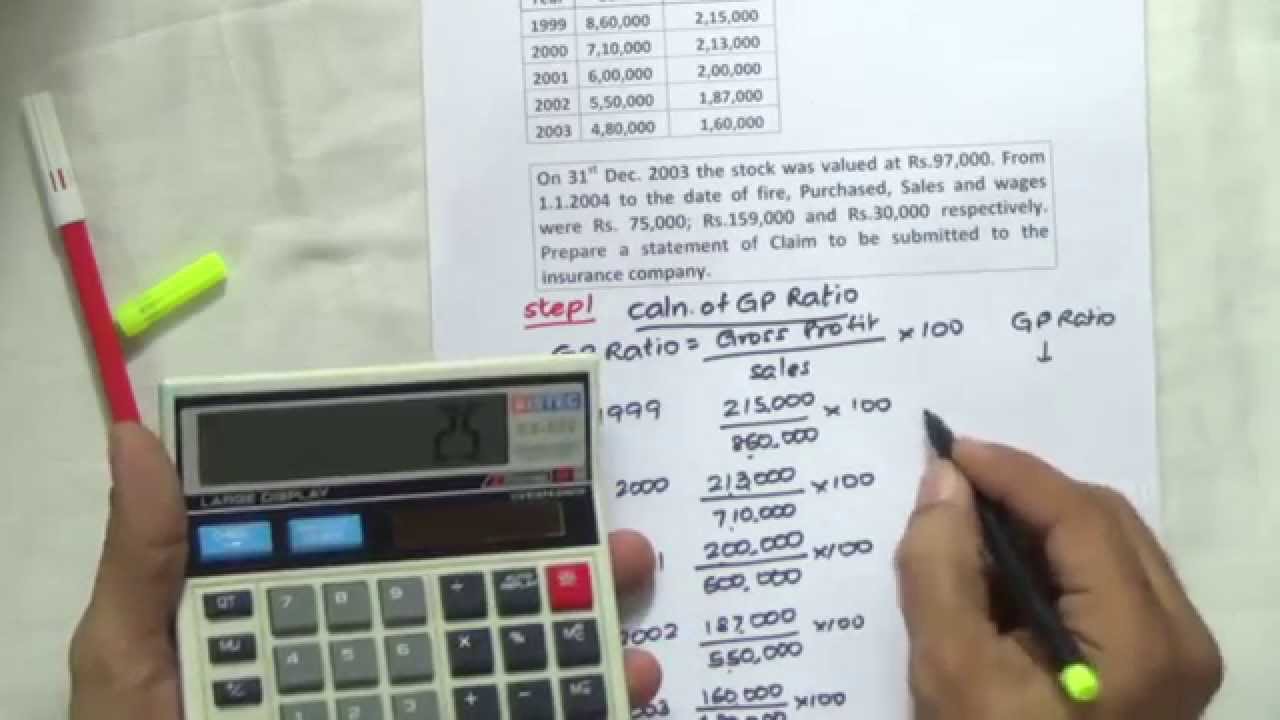 1999 8,60,000 2,15,000
2000 7,10,000 2,13,000
2001 6,00,000 2,00,000
2002 5,50,000 1,87,000
2003 4,80,000 1,60,000
On 31st Dec. 2003 the stock was valued at Rs.97,000. From
1.1.2004 to the date of fire, Purchased, Sales and wages
were Rs. 75,000; Rs.159,000 and Rs.30,000 respectively.
Prepare a statement of Claim to be submitted to the
insurance company.
step1 caln. of GP Ratio
GP Ratio = Gross Profit × 100
sales
GP Ratio
↓
1999 215,000 × 100
860,000
2000 213,000 × 100
710,000
1 200,000 × 100
600,000
2002 187,000 × 100
550,000
003 160,000 × 100
25
LARGE DISPLAY
GT 7 8 9 ÷
MU 4 5 6 X %
+/- 1 2 3 + -